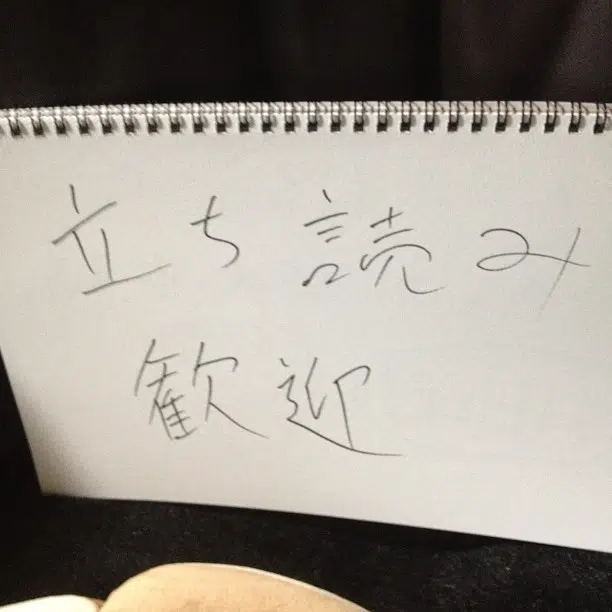 立ち読み
歓迎